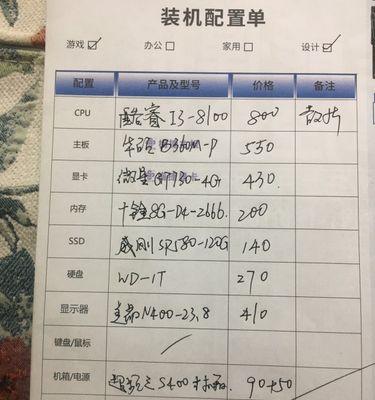 装机配置单
游戏 ☑ 办公 □ 家用 □ 设计 ☑
配置 产品及型号 价格 备注
CPU 酷睿 I3-8100 800 散片
主板 华硕 B360M-D 550
显卡 微星 GT730-4G 430
内存 十铨 8G-D4-2666. 200
SSD 威刚 SP580-120G 140
硬盘 WD-1T 270
显示器 N400-23.8 410
键盘/鼠标
机箱/电源 S400 90+50